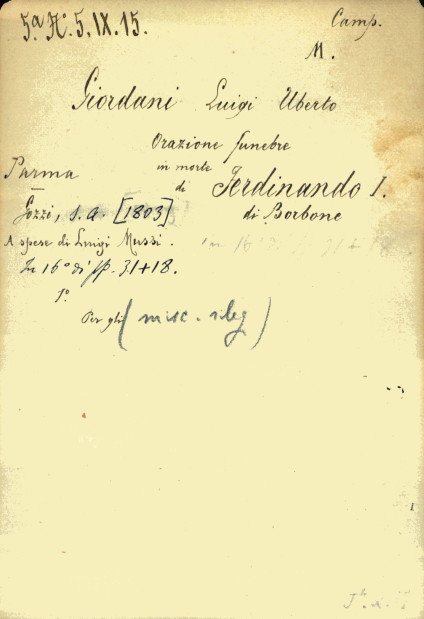 5ª H. 5. IX. 15.
Camp.
M.
Giordani Luigi Uberto
Orazione funebre
in morte
di Ferdinando I.
di Borbone
Parma
Gozzi, s. a. [1803]
A spese di Luigi Mussi.
In 16° di pp. 31+18.
1°
Per gli (misc. rleg)